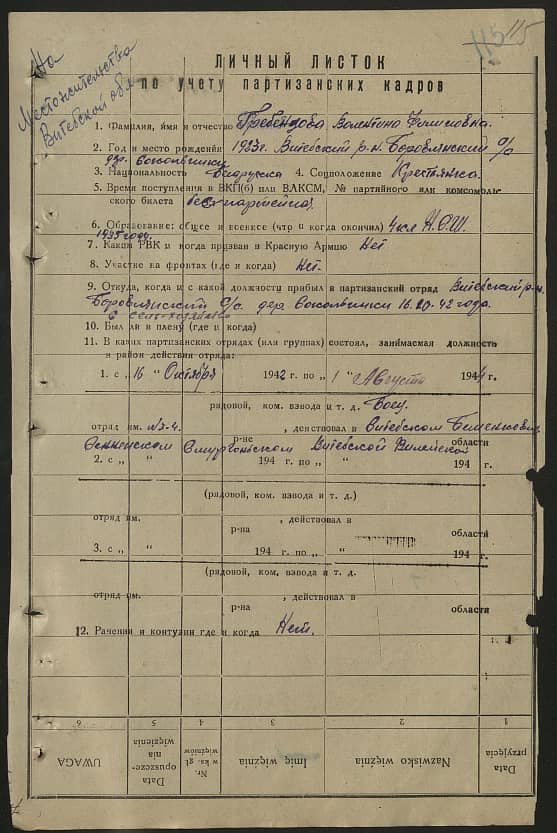 115 115
На
Местожительства
Витебской обл
ЛИЧНЫЙ ЛИСТОК
по учету партизанских кадров
1. Фамилия, имя и отчество Гребенцова Валентина Филиповна.
2. Год и место рождения 1923г. Витебский р-н. Боровлянский с/с
дер. Соколовщики
3. Национальность Беларуска 4. Соцположение Крестьянка.
5. Время поступления в ВКП(б) или ВЛКСМ, № партийного или комсомоль-
ского билета безпартейная
6. Образование: общее и военное (что и когда окончил) 4 кл Н.С.Ш.
1935 году.
7. Каким РВК и когда призван в Красную Армию Нет
8. Участие на фронтах (где и когда) Нет.
9. Откуда, когда и с какой должности прибыл в партизанский отряд Витебский р-н.
Боровлянский с/с. дер. Соколовщики 16.10-42 года.
с сель-хозяйство
10. Был ли в плену (где и когда)
11. В каких партизанских отрядах (или группах) состоял, занимаемая должность
и район действия отряда:
1. с „ 16 “ Октября 1942 г. по „ 1 “ Августа 1944 г.
рядовой, ком. взвода и т. д. Боец.
отряд им. №3-4. , действовал в Витебском Бешенкович
Сенненском Сморгоньском р-не Витебской Вилейской области
2. с „ “ 194 г. по „ “ 194 г.
(рядовой, ком. взвода и т. д.)
отряд им. , действовал в
р-на области
3. с „ “ 194 г. по „ “ 194 г.
(рядовой, ком. взвода и т. д.
отряд им. , действовал в
р-на области
12. Ранения и контузии где и когда Нет.
6 5 4 3 2 1
UWAGA Data opuszcze-nia więzienia Nr. w ks. gł. więźniów Imię więźnia Nazwisko więźnia Data przyjęcia